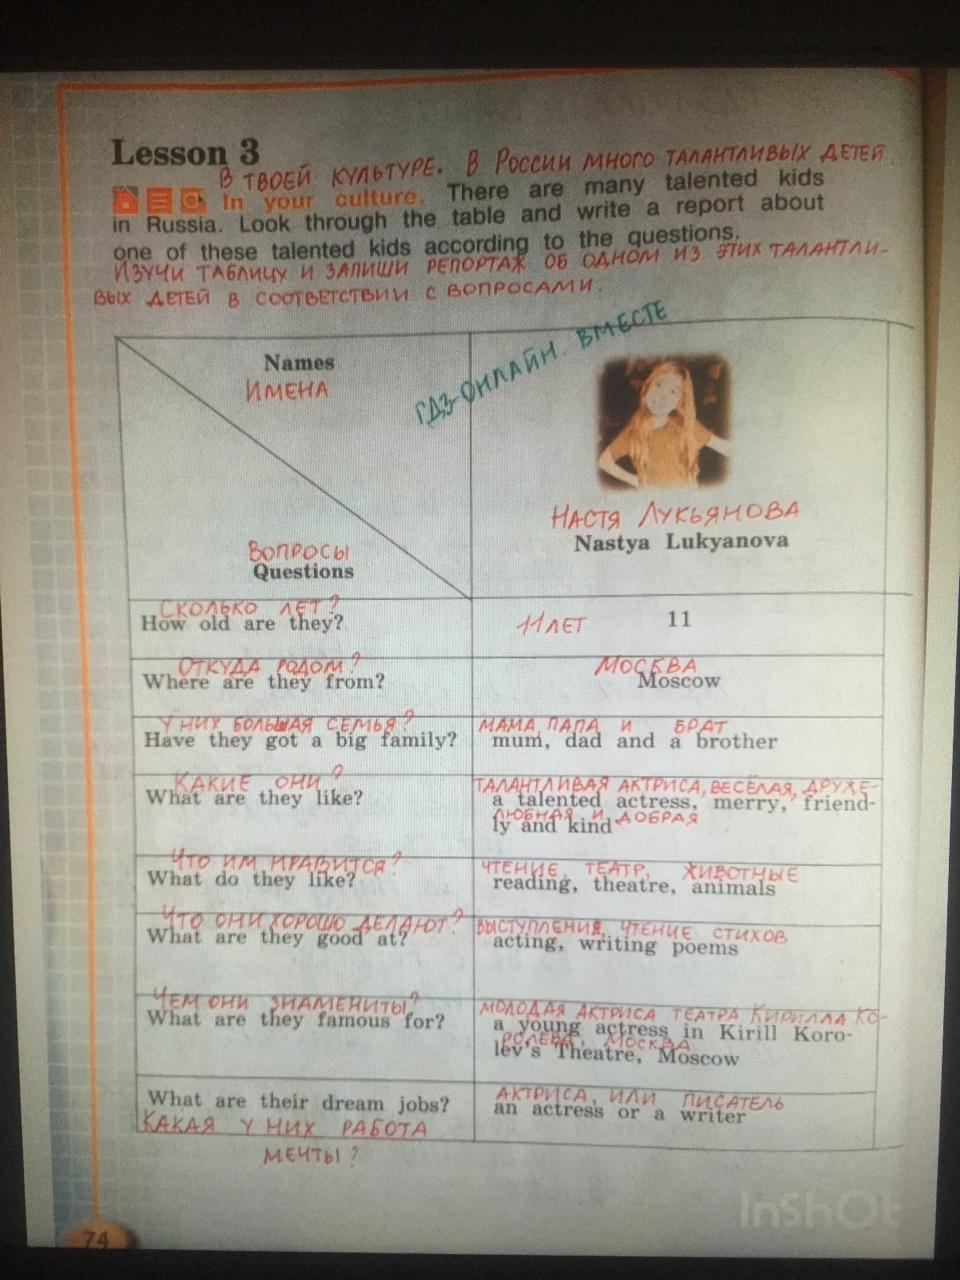 Lesson 3
В ТВОЕЙ КУЛЬТУРЕ. В РОССИИ МНОГО ТАЛАНТЛИВЫХ ДЕТЕЙ
In your culture. There are many talented kids
in Russia. Look through the table and write a report about
one of these talented kids according to the questions.
ИЗУЧИ ТАБЛИЦУ И ЗАПИШИ РЕПОРТАЖ ОБ ОДНОМ ИЗ ЭТИХ ТАЛАНТЛИ-
ВЫХ ДЕТЕЙ В СООТВЕТСТВИИ С ВОПРОСАМИ.
Names
ИМЕНА
ГДЗ-ОНЛАЙН ВМЕСТЕ
НАСТЯ ЛУКЬЯНОВА
Nastya Lukyanova
ВОПРОСЫ
Questions
СКОЛЬКО ЛЕТ?
How old are they?
11 ЛЕТ 11
ОТКУДА РОДОМ?
Where are they from?
МОСКВА
Moscow
У НИХ БОЛЬШАЯ СЕМЬЯ?
Have they got a big family?
МАМА, ПАПА И БРАТ
mum, dad and a brother
КАКИЕ ОНИ?
What are they like?
ТАЛАНТЛИВАЯ АКТРИСА, ВЕСЁЛАЯ, ДРУЖЕ-
a talented actress, merry, friend-
ЛЮБНАЯ И ДОБРАЯ
ly and kind
ЧТО ИМ НРАВИТСЯ?
What do they like?
ЧТЕНИЕ, ТЕАТР, ЖИВОТНЫЕ
reading, theatre, animals
ЧТО ОНИ ХОРОШО ДЕЛАЮТ?
What are they good at?
ВЫСТУПЛЕНИЯ, ЧТЕНИЕ СТИХОВ
acting, writing poems
ЧЕМ ОНИ ЗНАМЕНИТЫ?
What are they famous for?
МОЛОДАЯ АКТРИСА ТЕАТРА КИРИЛЛА КО-
a young actress in Kirill Koro-
РОЛЕВА, МОСКВА
lev's Theatre, Moscow
What are their dream jobs?
КАКАЯ У НИХ РАБОТА
МЕЧТЫ?
АКТРИСА, ИЛИ ПИСАТЕЛЬ
an actress or a writer
InShOt
74